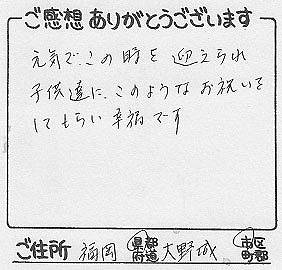 ご感想ありがとうございます
元気で、この時を 迎えられ
子供達に、このような お祝いを
してもらい 幸福です
ご住所 福岡 県都府道 大野城 市区町郡